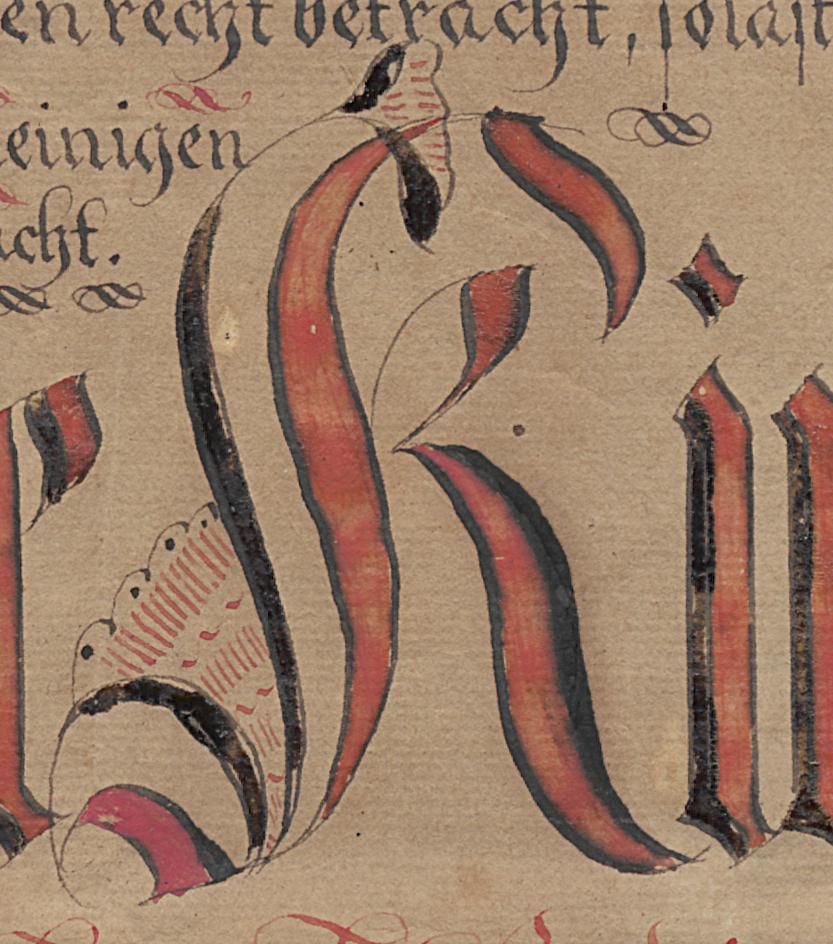 en recht betracht, solast
einigen
acht.
r Kin